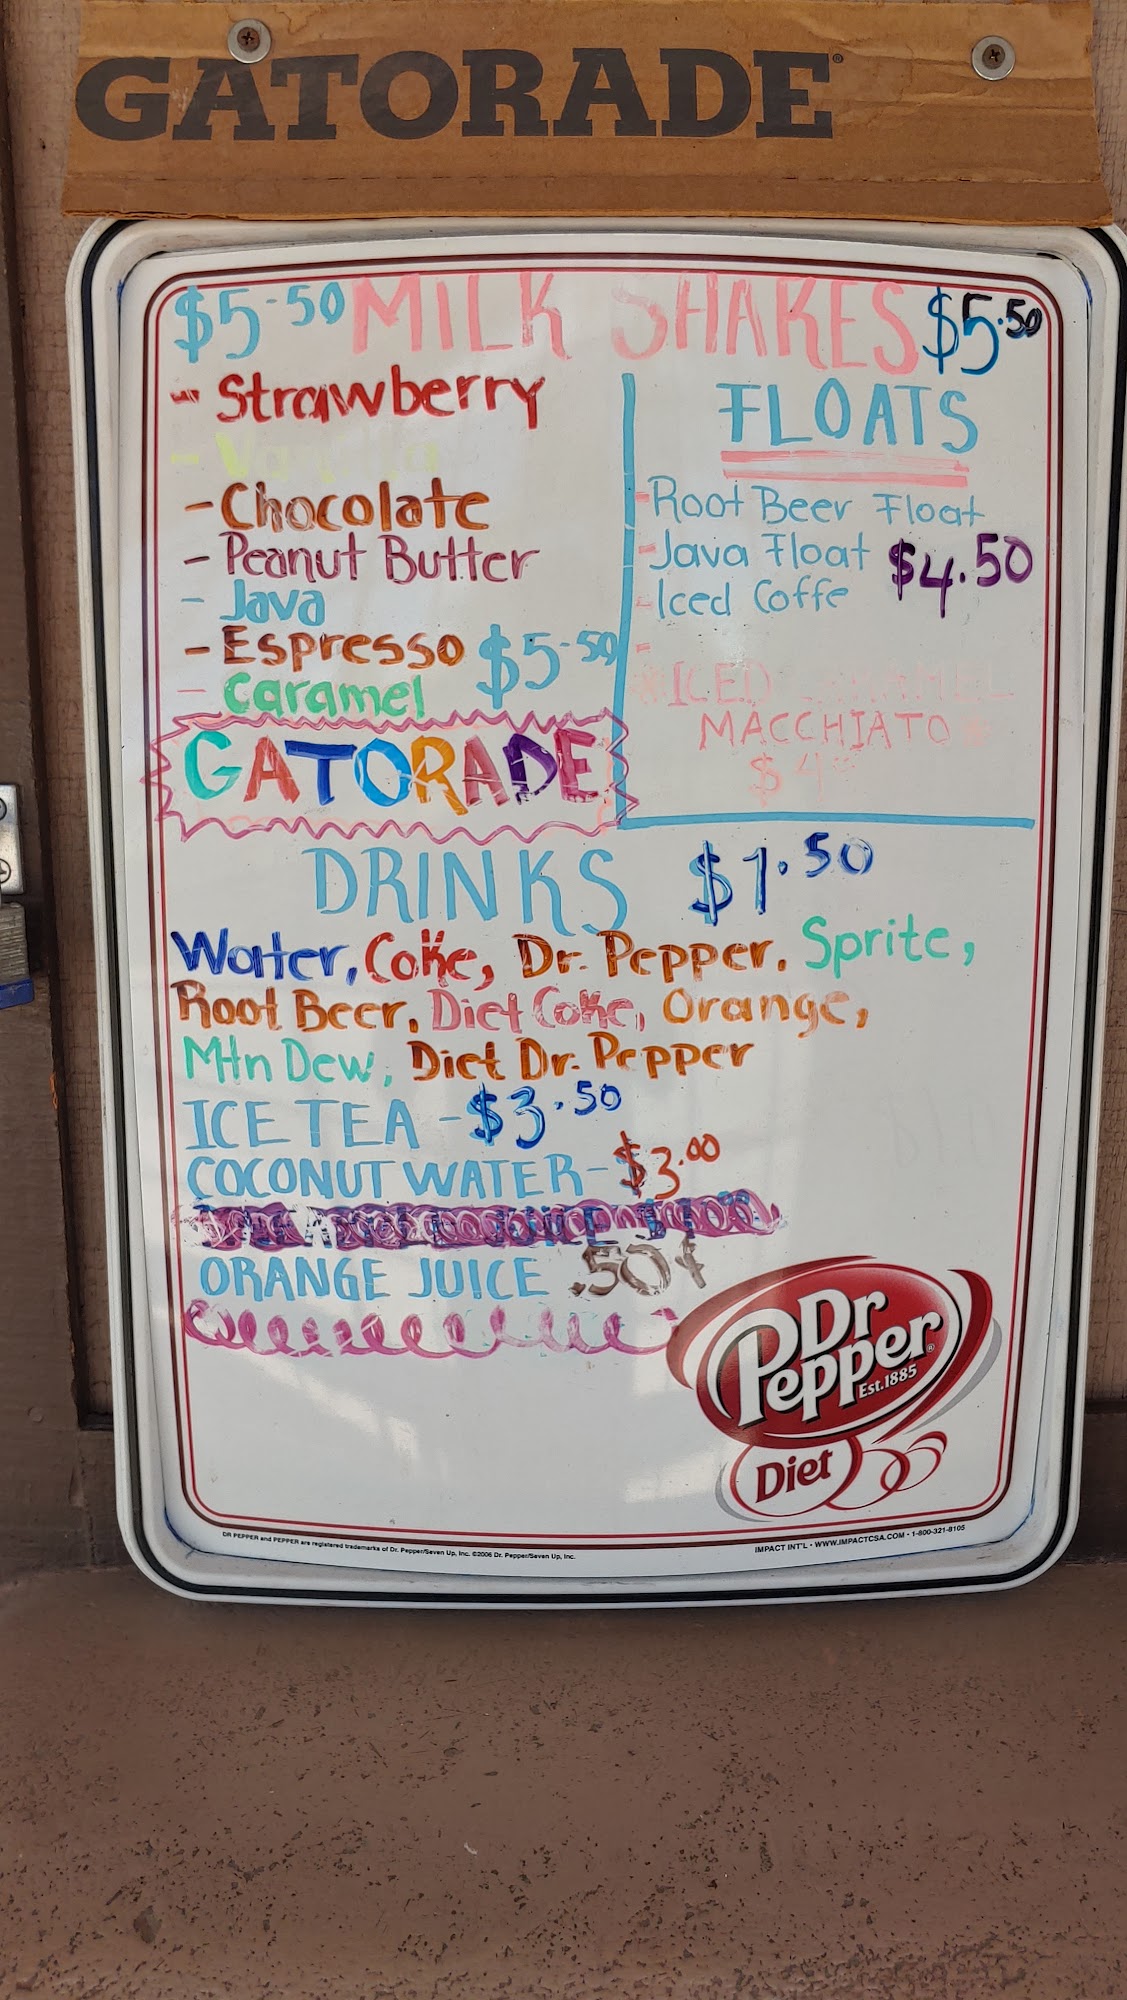 GATORADE
$5.50 MILK SHAKES $5.50
- Strawberry
- Vanilla
- Chocolate
- Peanut Butter
- Java
- Espresso $5.50
- Caramel
FLOATS
- Root Beer Float
- Java Float $4.50
- Iced Coffe
-
* ICED CARAMEL
MACCHIATO *
$4
GATORADE
DRINKS $1.50
Water, Coke, Dr. Pepper, Sprite,
Root Beer, Diet Coke, Orange,
Mtn Dew, Diet Dr. Pepper
ICE TEA - $3.50
COCONUT WATER - $3.00
ORANGE JUICE .50¢
Dr
Pepper®
Est. 1885
Diet
DR PEPPER and PEPPER are registered trademarks of Dr. Pepper/Seven Up, Inc. ©2006 Dr. Pepper/Seven Up, Inc.
IMPACT INT'L • WWW.IMPACTCSA.COM • 1-800-321-8105